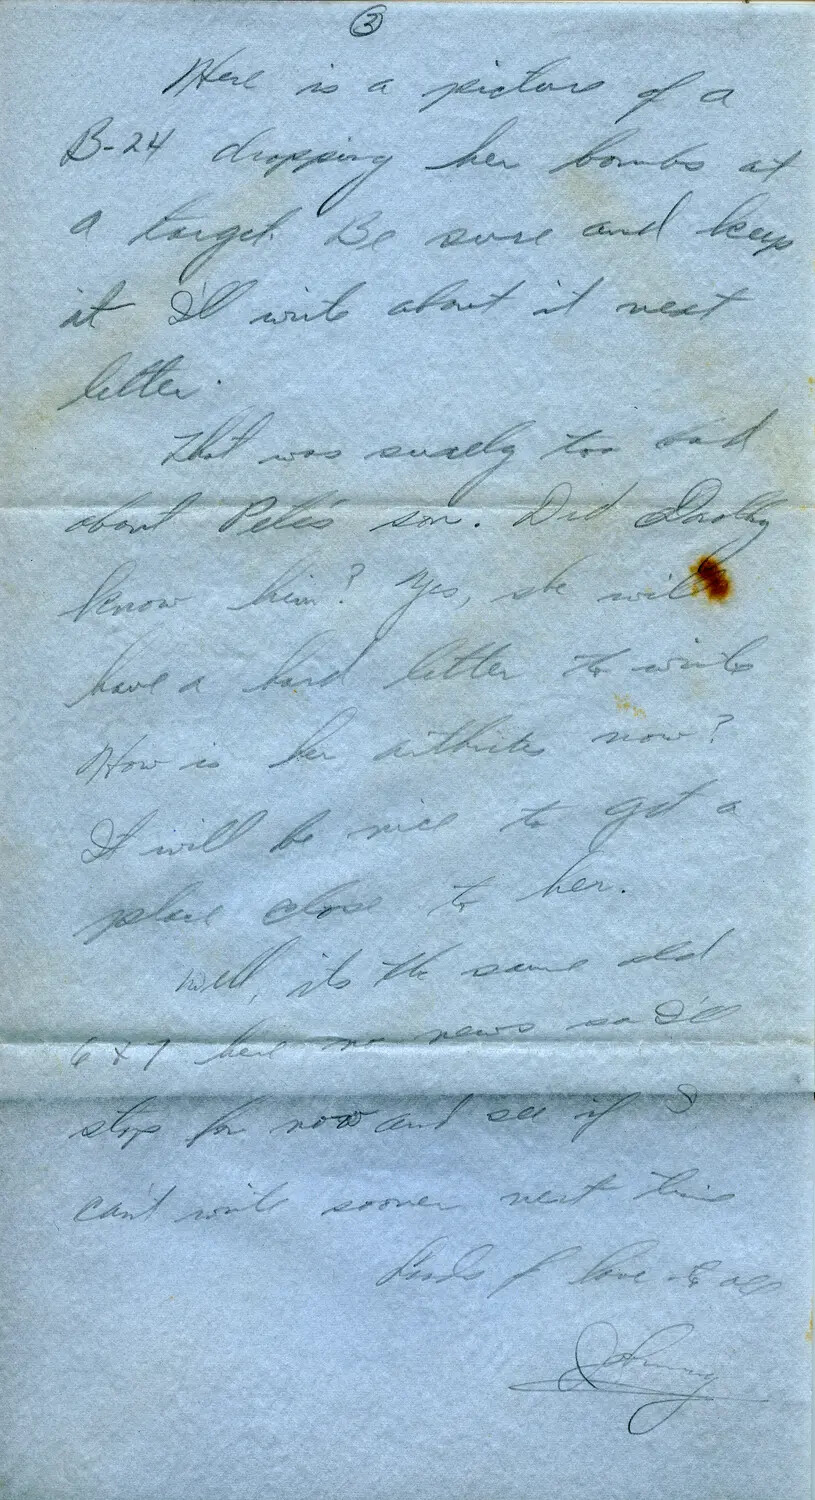 ②
Here is a picture of a
B-24 dropping her bombs at
a target. Be sure and keep
it I'll write about it next
letter.
That was surely too bad
about Pete's son. Did Dorothy
know him? Yes, she will
have a hard letter to write
How is her arthritis now?
It will be nice to get a
place close to her.
Well, its the same old
6 & 7 here no news so I'll
stop for now and see if I
can't write sooner next time
Loads of love to all
Johnny